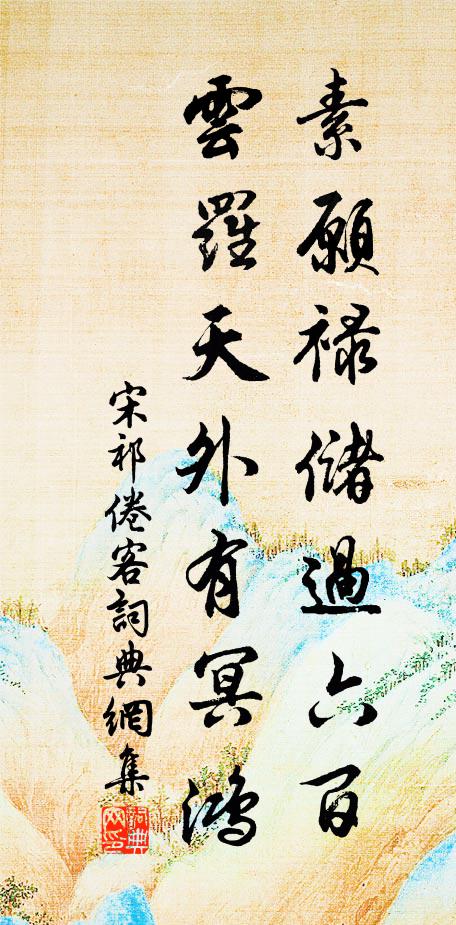 素願禄儲過六百
雲羅天外有冥鴻
宋祁倦客詞典網集